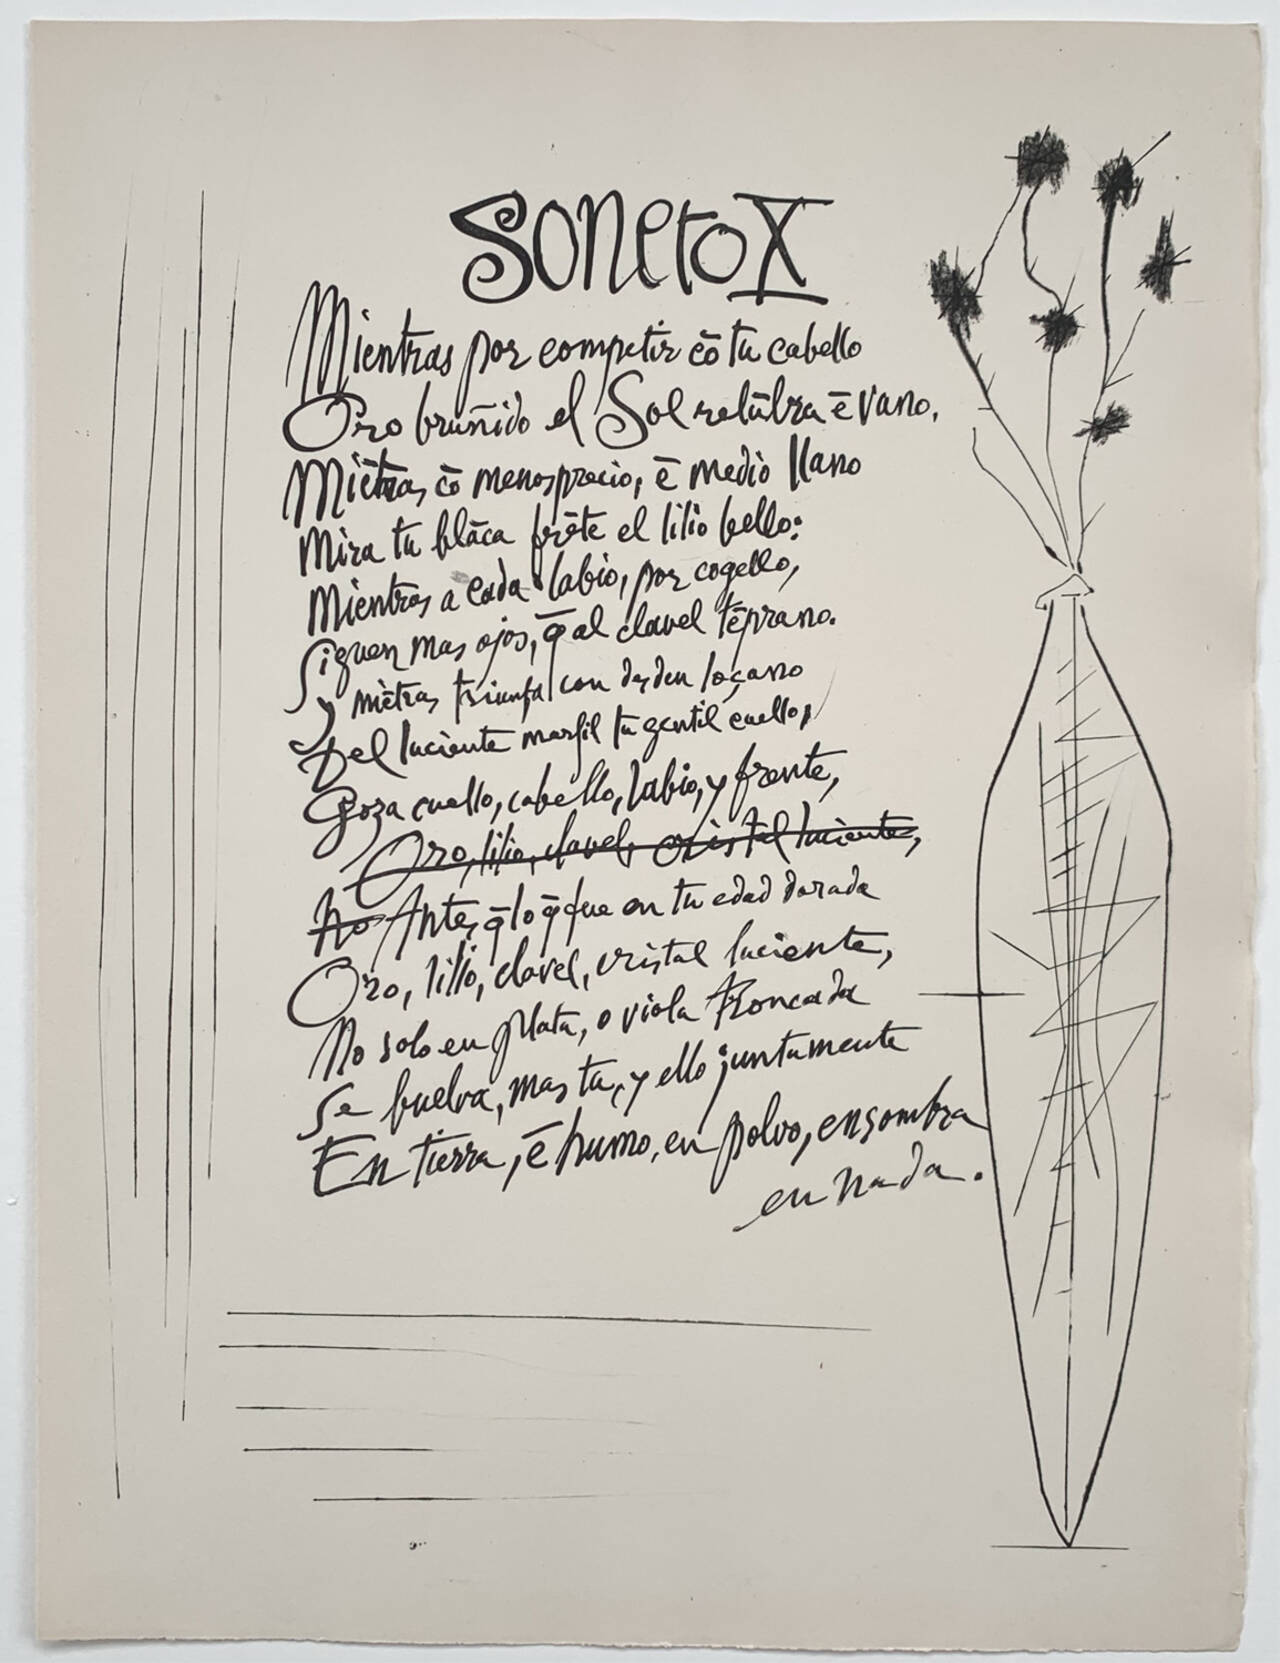 Soneto X
Mientras por competir cō tu cabello
Oro bruñido el Sol relūbra ē vano,
Miētras cō menosprecio, ē medio llano
Mira tu blāca frēte el lilio bello:
Mientras a cada labio, por cogello,
Siguen mas ojos, q̄ al clavel tēprano.
y miētras triunfa con desden loçano
Del luciente marfil tu gentil cuello,
Goza cuello, cabello, labio, y frente,
Oro, lilio, clavel, cristal luciente,
No Antes q̄ lo q̄ fue en tu edad dorada
Oro, lilio, clavel, cristal luciente,
No solo en plata, o viola troncada
Se buelva, mas tu, y ello juntamente
En tierra, ē humo, en polvo, en sombra
en nada.